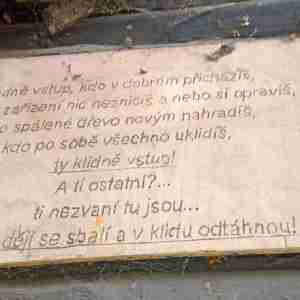 dně vstup, kdo v dobrém přicházíš,
zařízení nic nezničíš a nebo si opravíš,
o spálené dřevo novým nahradíš,
kdo po sobě všechno uklidíš,
ty klidně vstup!
A ti ostatní?...
ti nezvaní tu jsou...
ději se sbalí a v klidu odtáhnou!